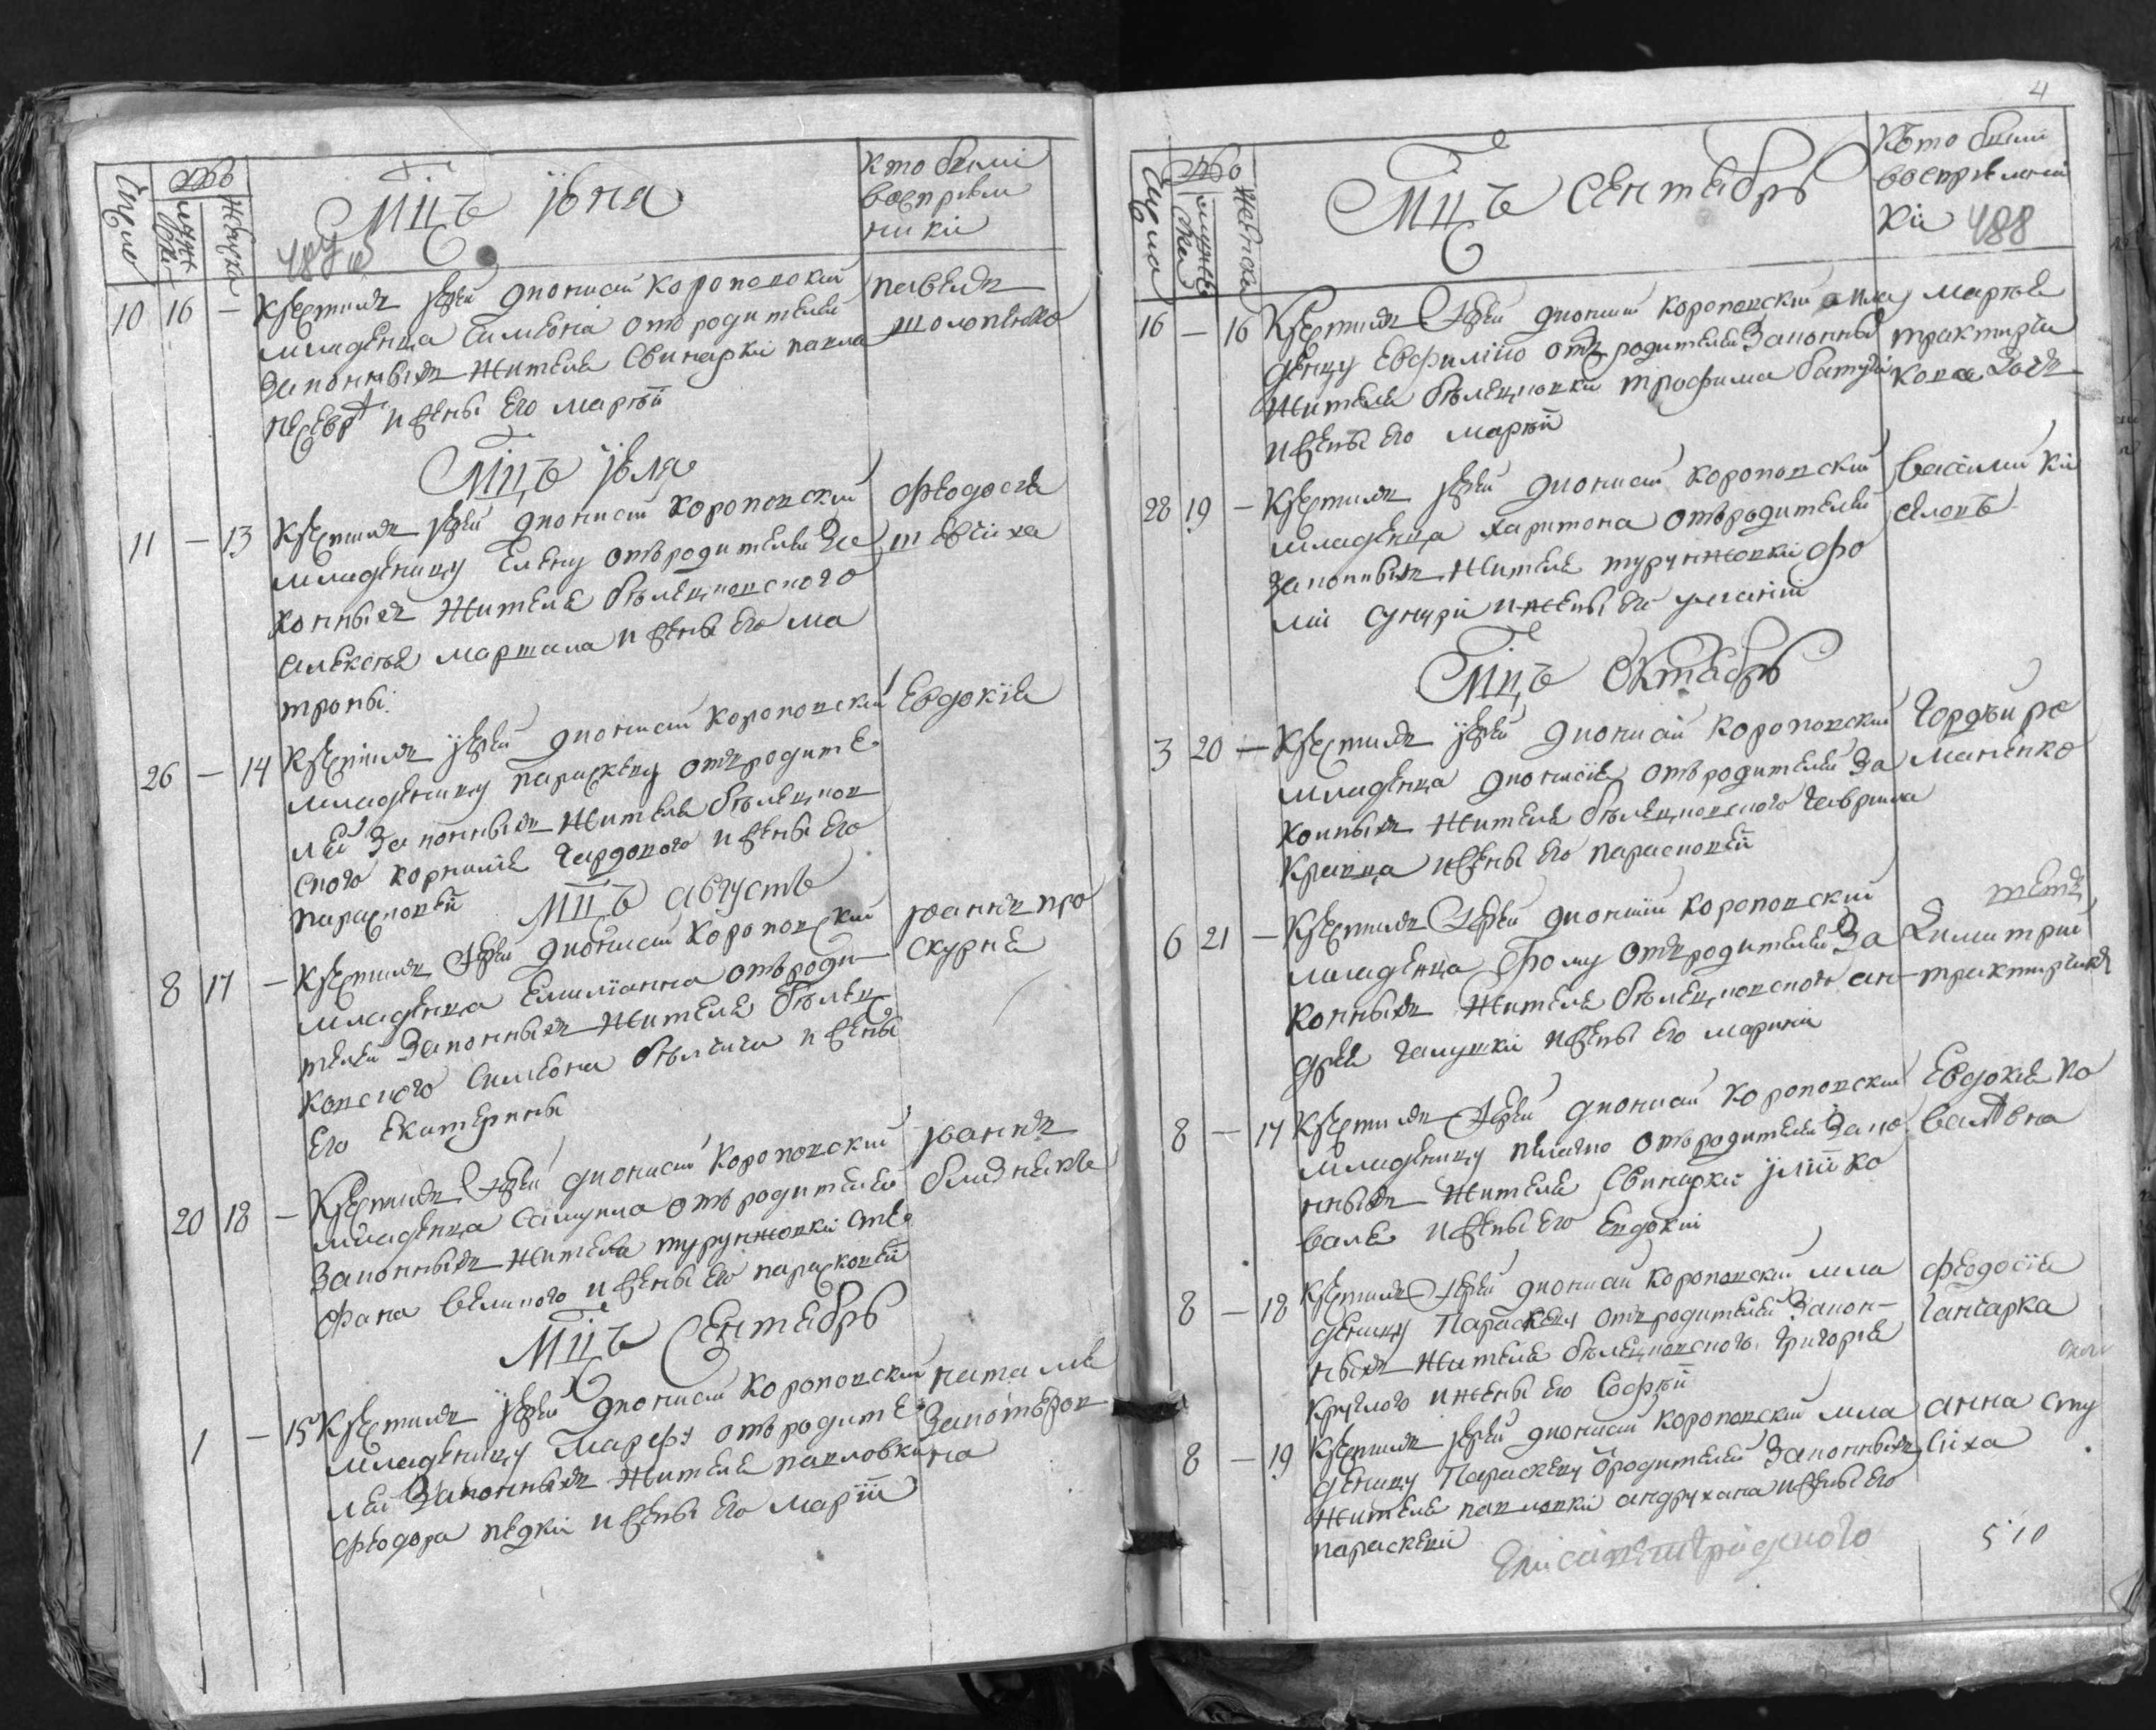 Число
мужска
женска
Мцъ Iюна
487
кто были
восприем
ники
10 16 — Крестилъ Iерей дионисий Короповский
младенца Симеона отъ родителей
законныхъ жителя Свинарки павла
и жены его Марѳiи
павелъ
Мцъ Iюля
11 — 13 Крестилъ Iерей дионисий Короповский
младеницу Елену отъ родителей за
конныхъ жителя бѣлецковского
алексѣя мартала и жены его ма
троны
феодосiя
26 — 14 Крестилъ Iерей дионисий Короповский
младеницу параскеву отъ родите
лей законныхъ жителя бѣлецков
ского корнилiя гардового и жены его
параскевiи
Евдокiя
Мцъ августъ
8 17 — Крестилъ Iерей дионисий Короповский
младенца Емилiанна отъ роди
телей законныхъ жителя бѣлец
ковского Симеона и жены
его Екатерины
Iоаннъ про
скурня
20 18 — Крестилъ Iерей дионисий Короповский
младенца Самуила отъ родителей
законныхъ жителя турунжовки сте
фана великого и жены его параскевiи
Iоаннъ
Мцъ Сентябрь
1 — 15 Крестилъ Iерей дионисий Короповский
младеницу Марѳу отъ родите
лей законныхъ жителя павловки
феодора педки и жены его Марiи
наталiя
4
Число
мужеска
женска
Мцъ Сентябрь
Кто были
восприемни
ки 488
16 — 16 Крестилъ Iерей дионисий Короповский мла
деницу Евфимiю отъ родителей законны
жителя бѣлецковки трофима
и жены его Марѳiи
Марѳа
28 19 — Крестилъ Iерей дионисий Короповский
младенца харитона отъ родителей
законныхъ жителя турунжовки фо
мы и жены его улiании
василий ки
селовъ
Мцъ Октябрь
3 20 — Крестилъ Iерей дионисий Короповский
младенца дионисiя отъ родителей за
конныхъ жителя бѣлецковского гаврила
кравца и жены его параскевiи
гордѣй ро
маненко
6 21 — Крестилъ Iерей дионисий Короповский
младенца Фому отъ родителей за
конныхъ жителя бѣлецковского ан
дрея галушки и жены его марины
Димитрий
8 — 17 Крестилъ Iерей дионисий Короповский
младеницу пелагiю отъ родителей зако
нныхъ жителя Свинарки Iлiи ко
валя и жены его Евдокiи
Евдокiя ко
валѣвна
8 — 18 Крестилъ Iерей дионисий Короповский мла
деницу Параскеву отъ родителей закон
ныхъ жителя бѣлецковского григорiя
круглого и жены его Софiи
феодосiя
ганчарка
8 — 19 Крестилъ Iерей дионисий Короповский мла
деницу Параскеву родителей законныхъ
жителя павловки андрухана и жены его
параскевiи
анна сту
510